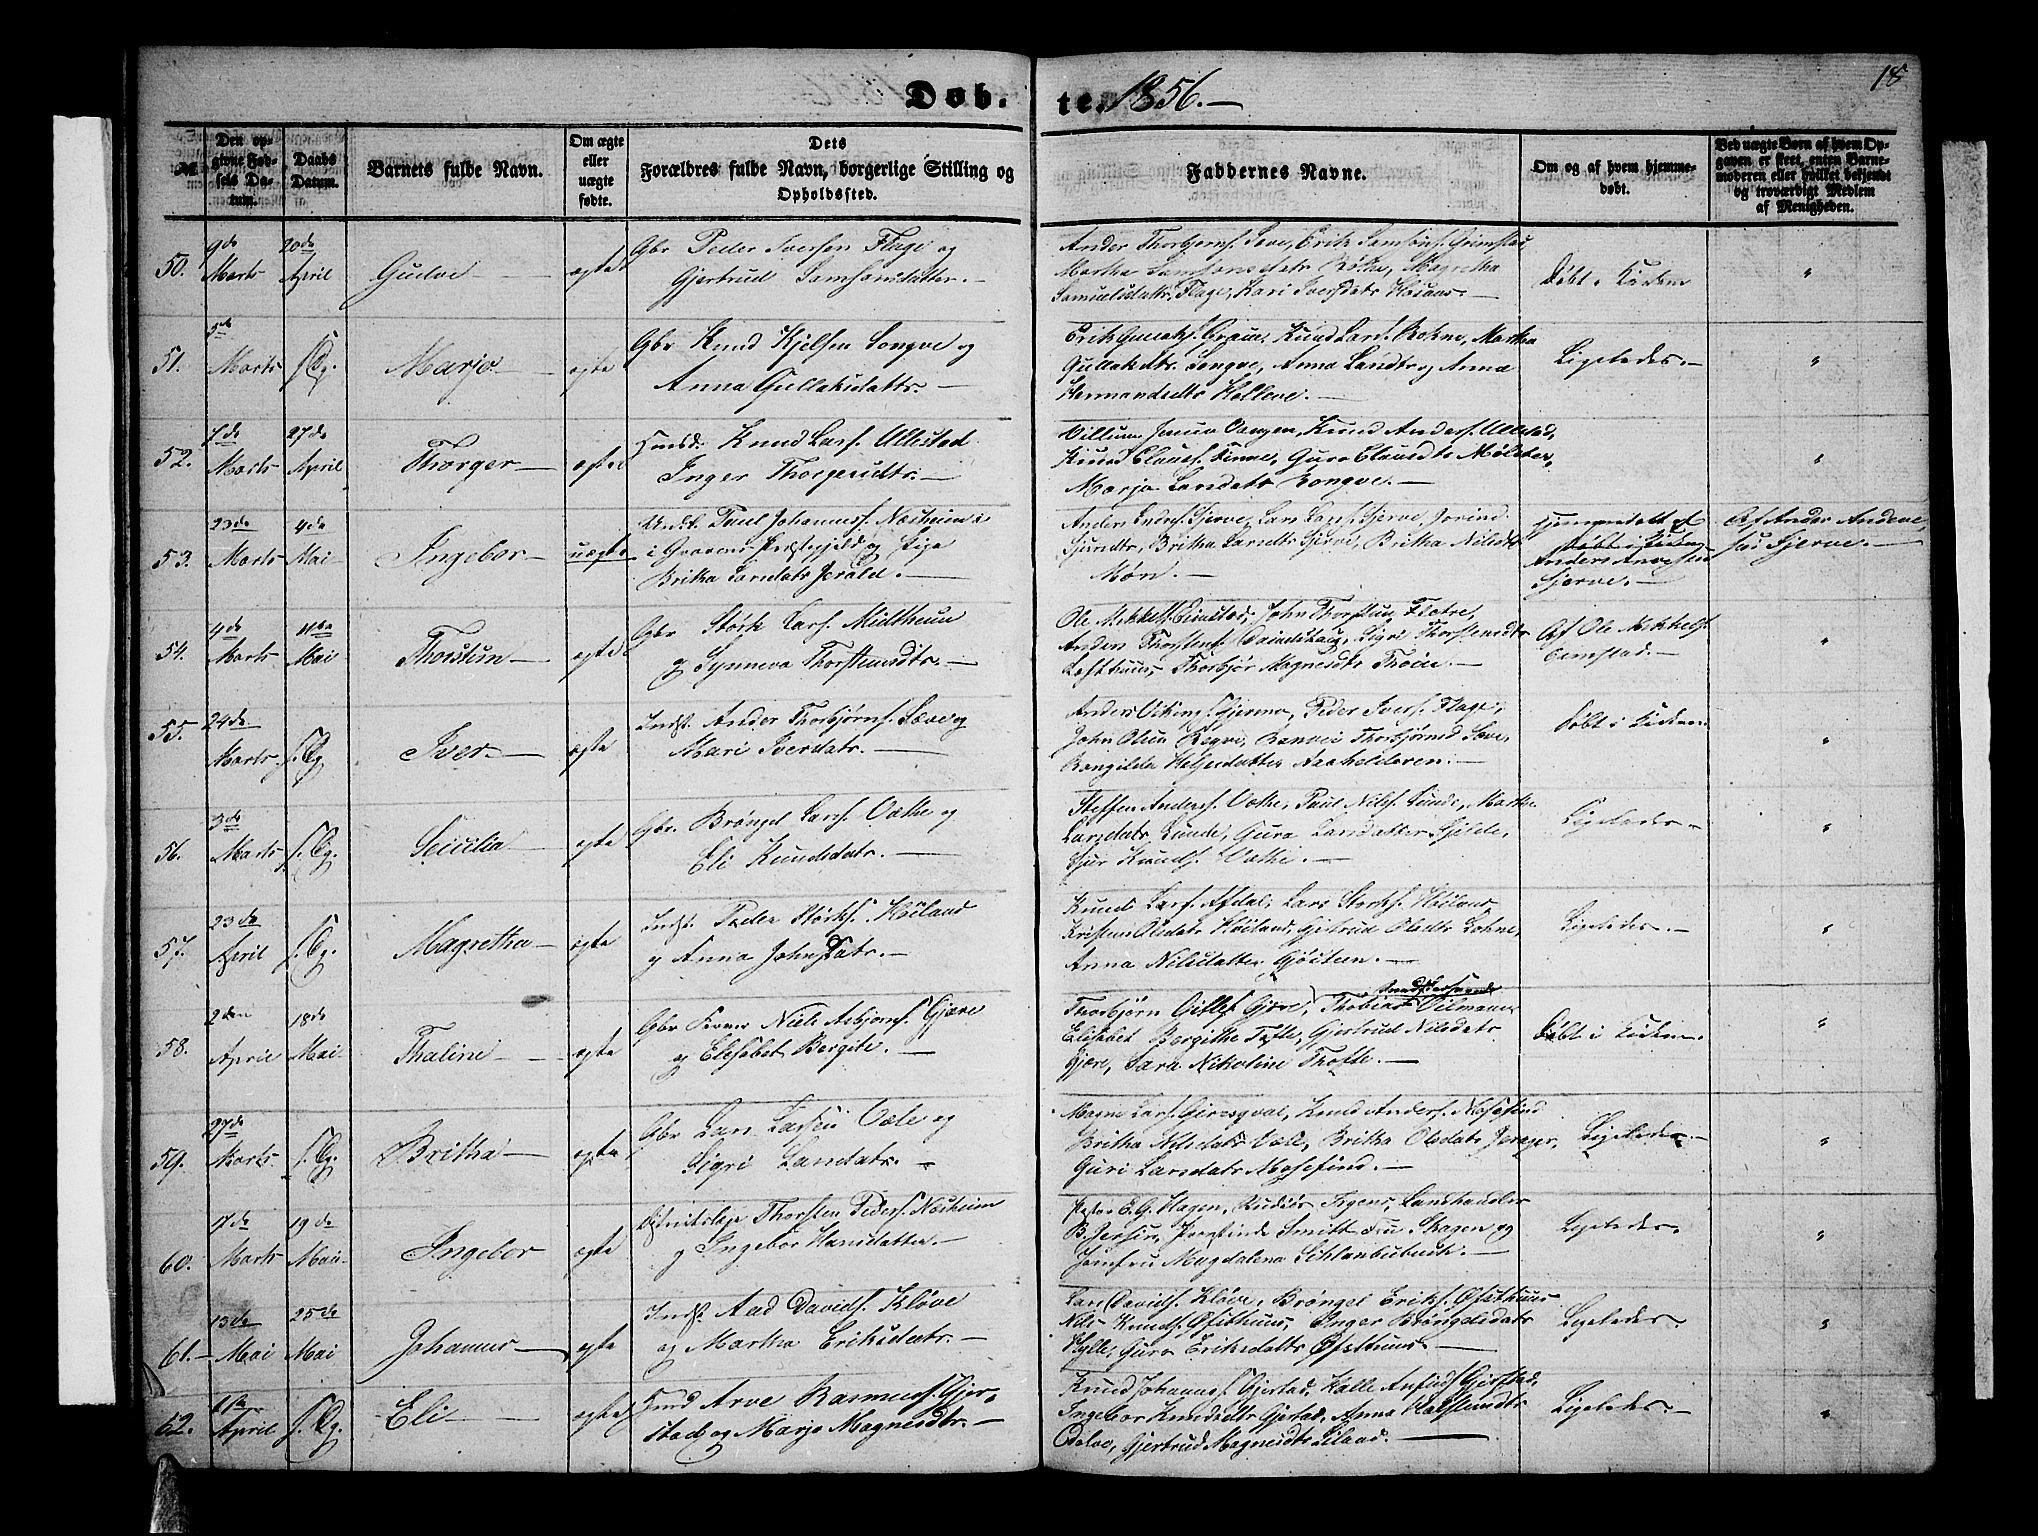 Døb- te. 1856.-
18
№
Den op-
givne Fød-
sels Da-
tum.
Daabs
Datum.
Barnets fulde Navn.
Om ægte
eller
uægte
fødte.
Dets
Forældres fulde Navn, borgerlige Stilling og
Opholdssted.
Faddernes Navne.
Om og af hvem hjemme-
døbt.
Ved uægte Børn af hvem Op-
gaven er skeet, enten Barne-
moderen eller hvilket bekjendt
og troværdigt Medlem
af Menigheden.
50. 9de Marts 20de April Gudve ægte
Gbr Peder Iversen Flage og
Gjertrud Samsonsdatter.
Ander Thorbjørns. Sæve, Erik Samsons. Grimstad
Martha Samsonsdatr Røthe, Magretha
Samuelsdattr. Flage, Kari Iversdatr
Døbt i Kirken
"
51. 5te Marts s. Dg. Marjo ægte
Gbr Knud Kjelsen Songve og
Anna Gullaksdattr.
Knud Lars. Rokne, Martha
Gullaksdtr. Songve, Anna Larsdtr og Anna
Hermandsdtr Helleve.
Ligeledes.
"
52. 7de Marts 27de April Thorger ægte
Huusd. Knud Lars. Ullestad
Inger Thorgersdtr.
Villum Vangen, Knud Anders. Ullestad,
Knud Clauss. Finne, Guro Clausdtr Mølster,
Marjo Larsdatr Rongve.
"
53. 23de Marts 4de Mai Ingebor uægte
Ungk. Paul Johanness. Næsheim i
i Graavens Præstegjeld og Pige
Britha Larsdatr Jerald.
Anders Endres. Gjerve, Lars Lars. Gjerve, Jorind
Sjursdtr, Britha Larsdtr Gjerve, Britha Nilsdtr
Møn.
Hjemmedøbt af
Anders Andersen
Gjerve.
Af Ander Anderse
Gjerve.
54. 4de Marts 11te Mai Thorstein ægte
Gbr Størk Lars. Midtheim
og Synneva Thorsteinsdtr.
Ole Mikkels. Eimstad, John Thorsteins. Flatre,
Anders Thorsteins. Sigri Thorsteinsdtr
Lofthuus, Thorbjør Magnesdtr Thøn.
Af Ole Mikkels.
Eimstad.
"
55. 24de Marts s. Dg Iver ægte
Indst. Ander Thorbjørns. Sæve og
Mari Iversdatr.
Anders Vikings. Gjerme, Peder Ivers. Flage,
John Olsen Rogve, Ranvei Thorbjørnsd Sæve,
Rongilda Helgesdatter
Døbt i Kirken.
"
56. 3de Marts s. Dg. Secilia ægte
Gbr. Brøngel Lars. Væthe og
Eli Knudsdatr.
Steffen Anders. Væthe, Paul Nils. Lunde, Martha
Larsdatr Lunde, Guro Larsdatter Gjelde,
Sjur Knuds. Væthe.
Ligeledes
"
57. 23de April s. Dg. Magretha ægte
Indst. Peder Størks. Høiland
og Anna Johnsdatr.
Knud Lars. Afdal, Lars Storks. Høiland
Kristen Olsdatr Høiland, Gjertrud Olsdtr Lohne,
Anna Nilsdatter Gjøstein.
Ligeledes.
"
58. 2den April 18de Mai Thaline ægte
Gbr Niels Asbjørns. Gjære
og Elisabet Bergite.
Thorbjørn Gitles. Gjære, Thobias Vilmann
Elisabet Bergithe Tofte, Gjertrud Nilsdatr
Gjære, Sara Nikoline Thofte.
Døbt i Kirken.
"
59. 27de Marts s. Dg. Britha ægte
Gbr Lars Larsen Væle og
Sigri Larsdatr.
Magne Lars. Knud Anders. Mosefind
Britha Nilsdatr Væle, Britha Olsdatr
Guri Larsdatr Mosefind.
Ligeledes.
"
60. 17de Marts 19de Mai Ingebor ægte
Distriktslæge Thorsten Peders. Næsheim
og Ingebor Hansdatter.
Pastor E. G. Hagen, Landhandler
B. Jersin, Smitt Fru Hagen og
Jomfru Magdalena Schlanbusch.
Ligeledes.
"
61. 13de Mai 25de Mai Johannes ægte
Indst. Aad Davids. Kløve
og Martha Eriksdatr.
Lars Davids. Kløve, Brøngel Eriks. Øfsthuus
Nils Knuds. Øfsthuus, Inger Brøngelsdatr
Hylle, Guro Eriksdatr Øfsthuus.
Ligeledes.
"
62. April s. Dg. Eli ægte
Huusd Arve Rasmuss. Gjer-
stad og Marjo Magnesdtr.
Knud Johannes. Gjerstad, Kalle Gjerstad,
Ingebor Knudsdtr Gjerstad, Anna
Gjertrud Magnesdtr Liland.
Ligeledes.
"